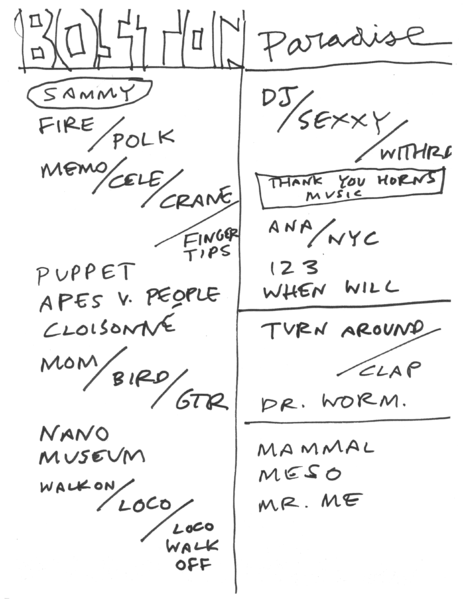 BOSTON
SAMMY
FIRE/POLK
MEMO/CELE/CRANE
/FINGER
TIPS
PUPPET
APES V. PEOPLE
CLOISONNÉ
MOM/BIRD/GTR
NANO
MUSEUM
WALK ON/LOCO
/LOCO
WALK
OFF
Paradise
DJ/SEXXY/WITHRD
THANK YOU HORNS
MUSIC
ANA/NYC
123
WHEN WILL
TURN AROUND
/CLAP
DR. WORM.
MAMMAL
MESO
MR. ME